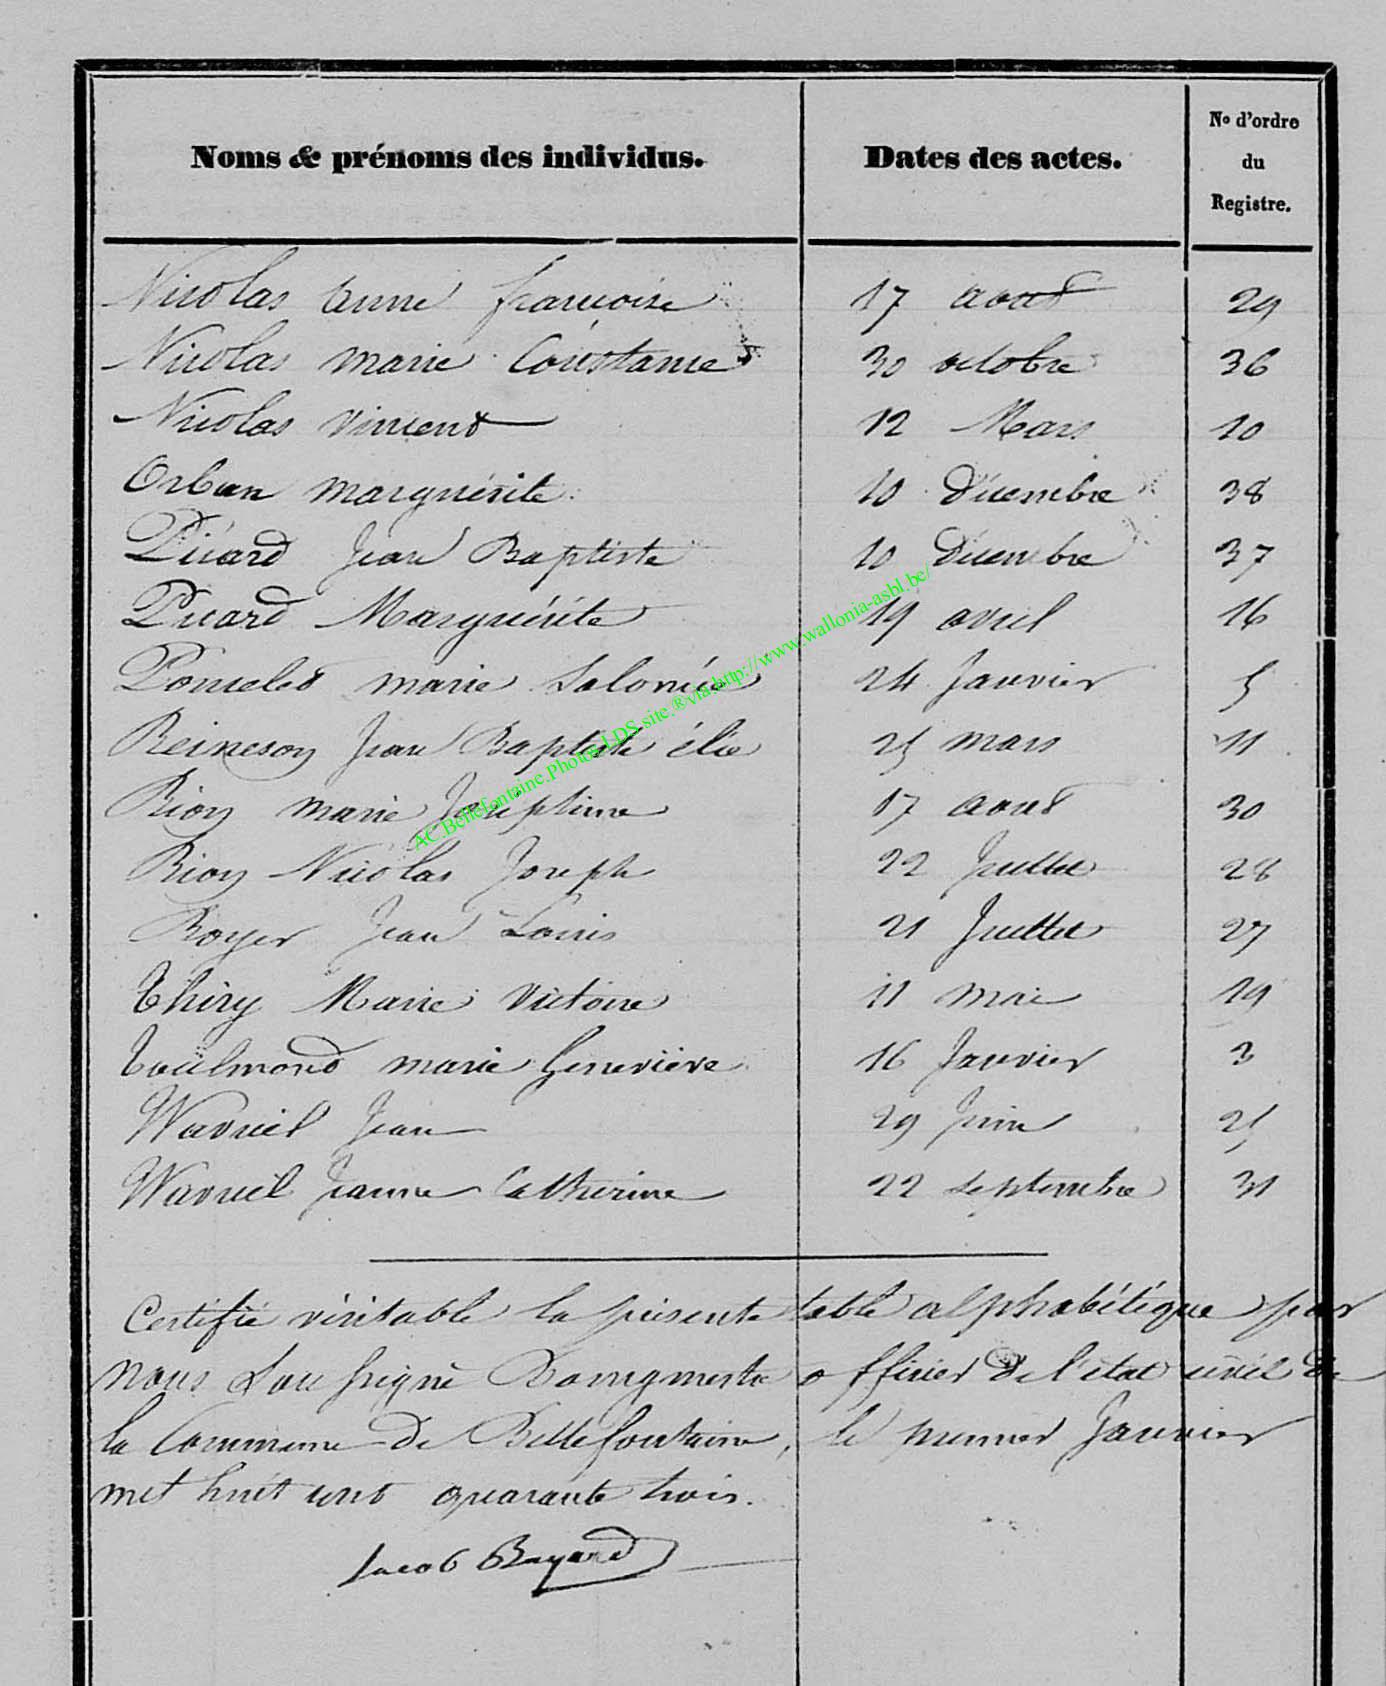 Noms & prénoms des individus. Dates des actes. No d'ordre du Registre.
Nicolas Anne françoise 17 aout 29
Nicolas marie Constance 30 octobre 36
Nicolas vincent 12 Mars 10
Orban marguérite 10 Décembre 38
Picard Jean Baptiste 10 Décembre 37
Picard Marguérite 19 avril 16
Poncelet marie Salomée 24 Janvier 5
Reineson Jean Baptiste élie 25 mars 11
Rion marie Joséphine 17 aout 30
Rion Nicolas Joseph 22 Juillet 28
Royer Jean Louis 21 Juillet 27
Thiry Marie Victoire 11 mai 19
Toulmond marie Geneviève 16 Janvier 3
Wavriel Jean 29 Juin 25
Wavriel Jeanne Catherine 22 septembre 31
Certifié véritable la présente table alphabétique par
nous Sousigné Bourgmestre officier de l'état civil de
la Commune de Bellefontaine, le premier Janvier
mil huit cent quarante trois.
Jacob Bayard
AC.Bellefontaine.Photos.LDS.site.®via.http://www.wallonia-asbl.be/